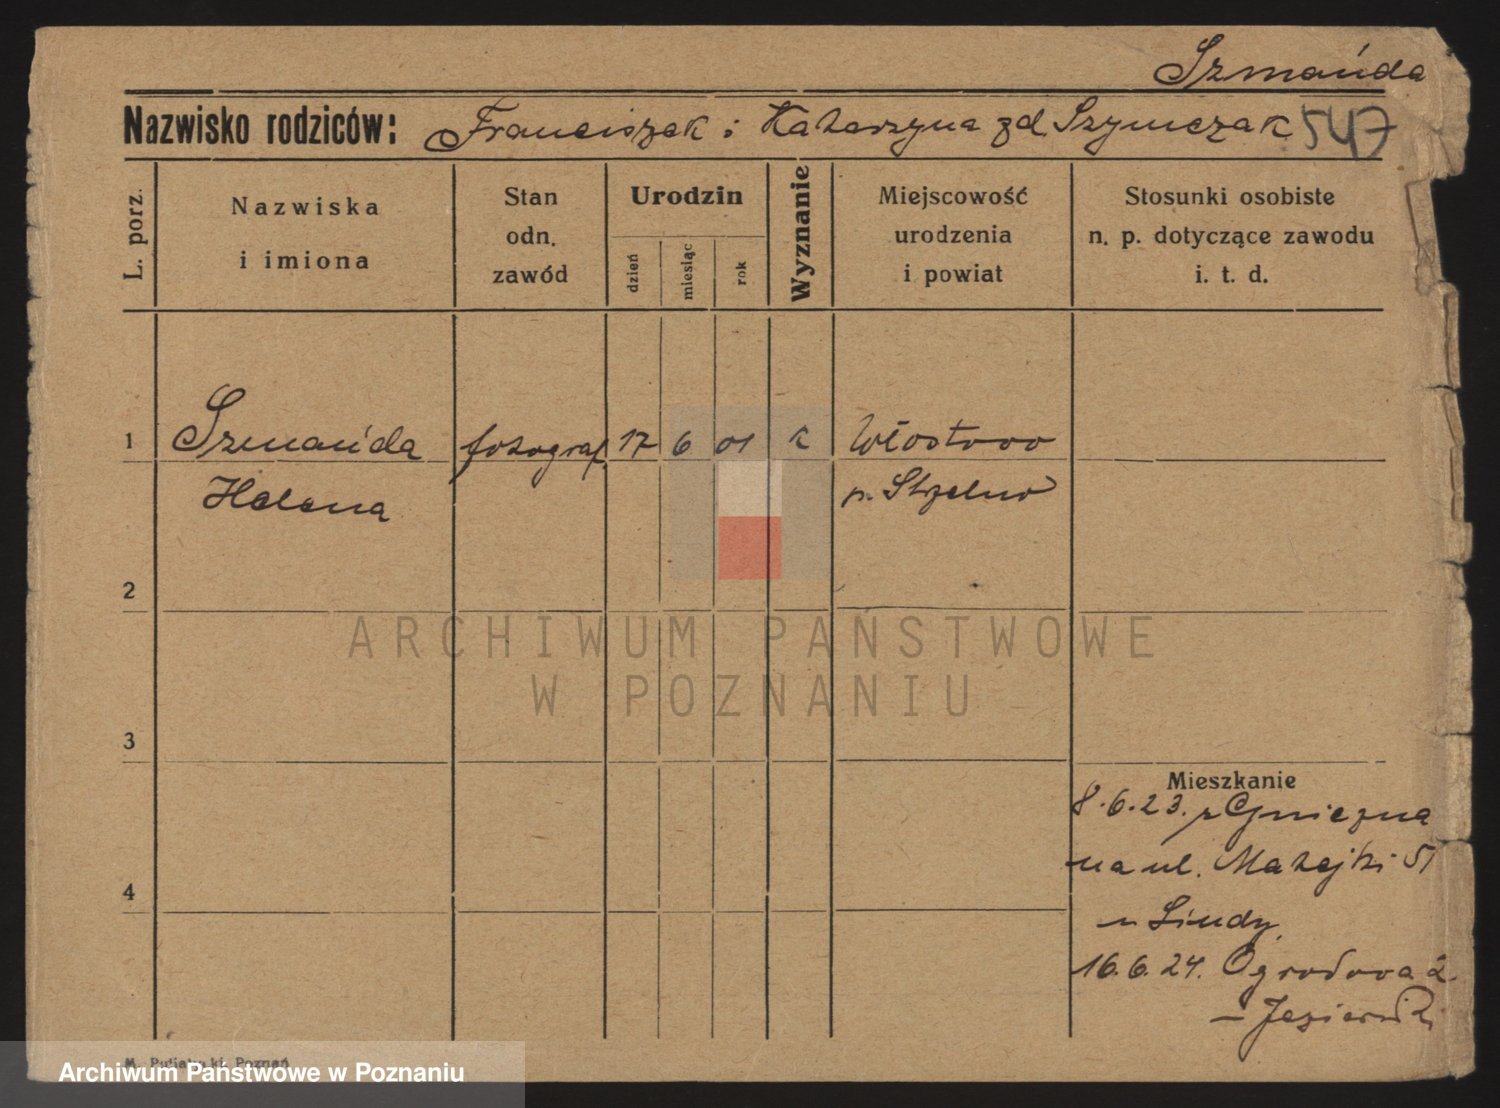 Szmańda
Nazwisko rodziców: Franciszek i Katarzyna zd Szymczak 547
L. porz.
Nazwiska
i imiona
Stan
odn.
zawód
Urodzin
dzień
miesiąc
rok
Wyznanie
Miejscowość
urodzenia
i powiat
Stosunki osobiste
n. p. dotyczące zawodu
i. t. d.
1 Szmańda fotograf 17 6 01 k Włostowo
Helena p. Strzelno
2
ARCHIWUM PAŃSTWOWE
W POZNANIU
3
Mieszkanie
8.6.23. z Gniezna
na ul. Matejki 51
4
u Lindy
16.6.24. Ogrodowa 2
– Jezierski
Poznań
Archiwum Państwowe w Poznaniu